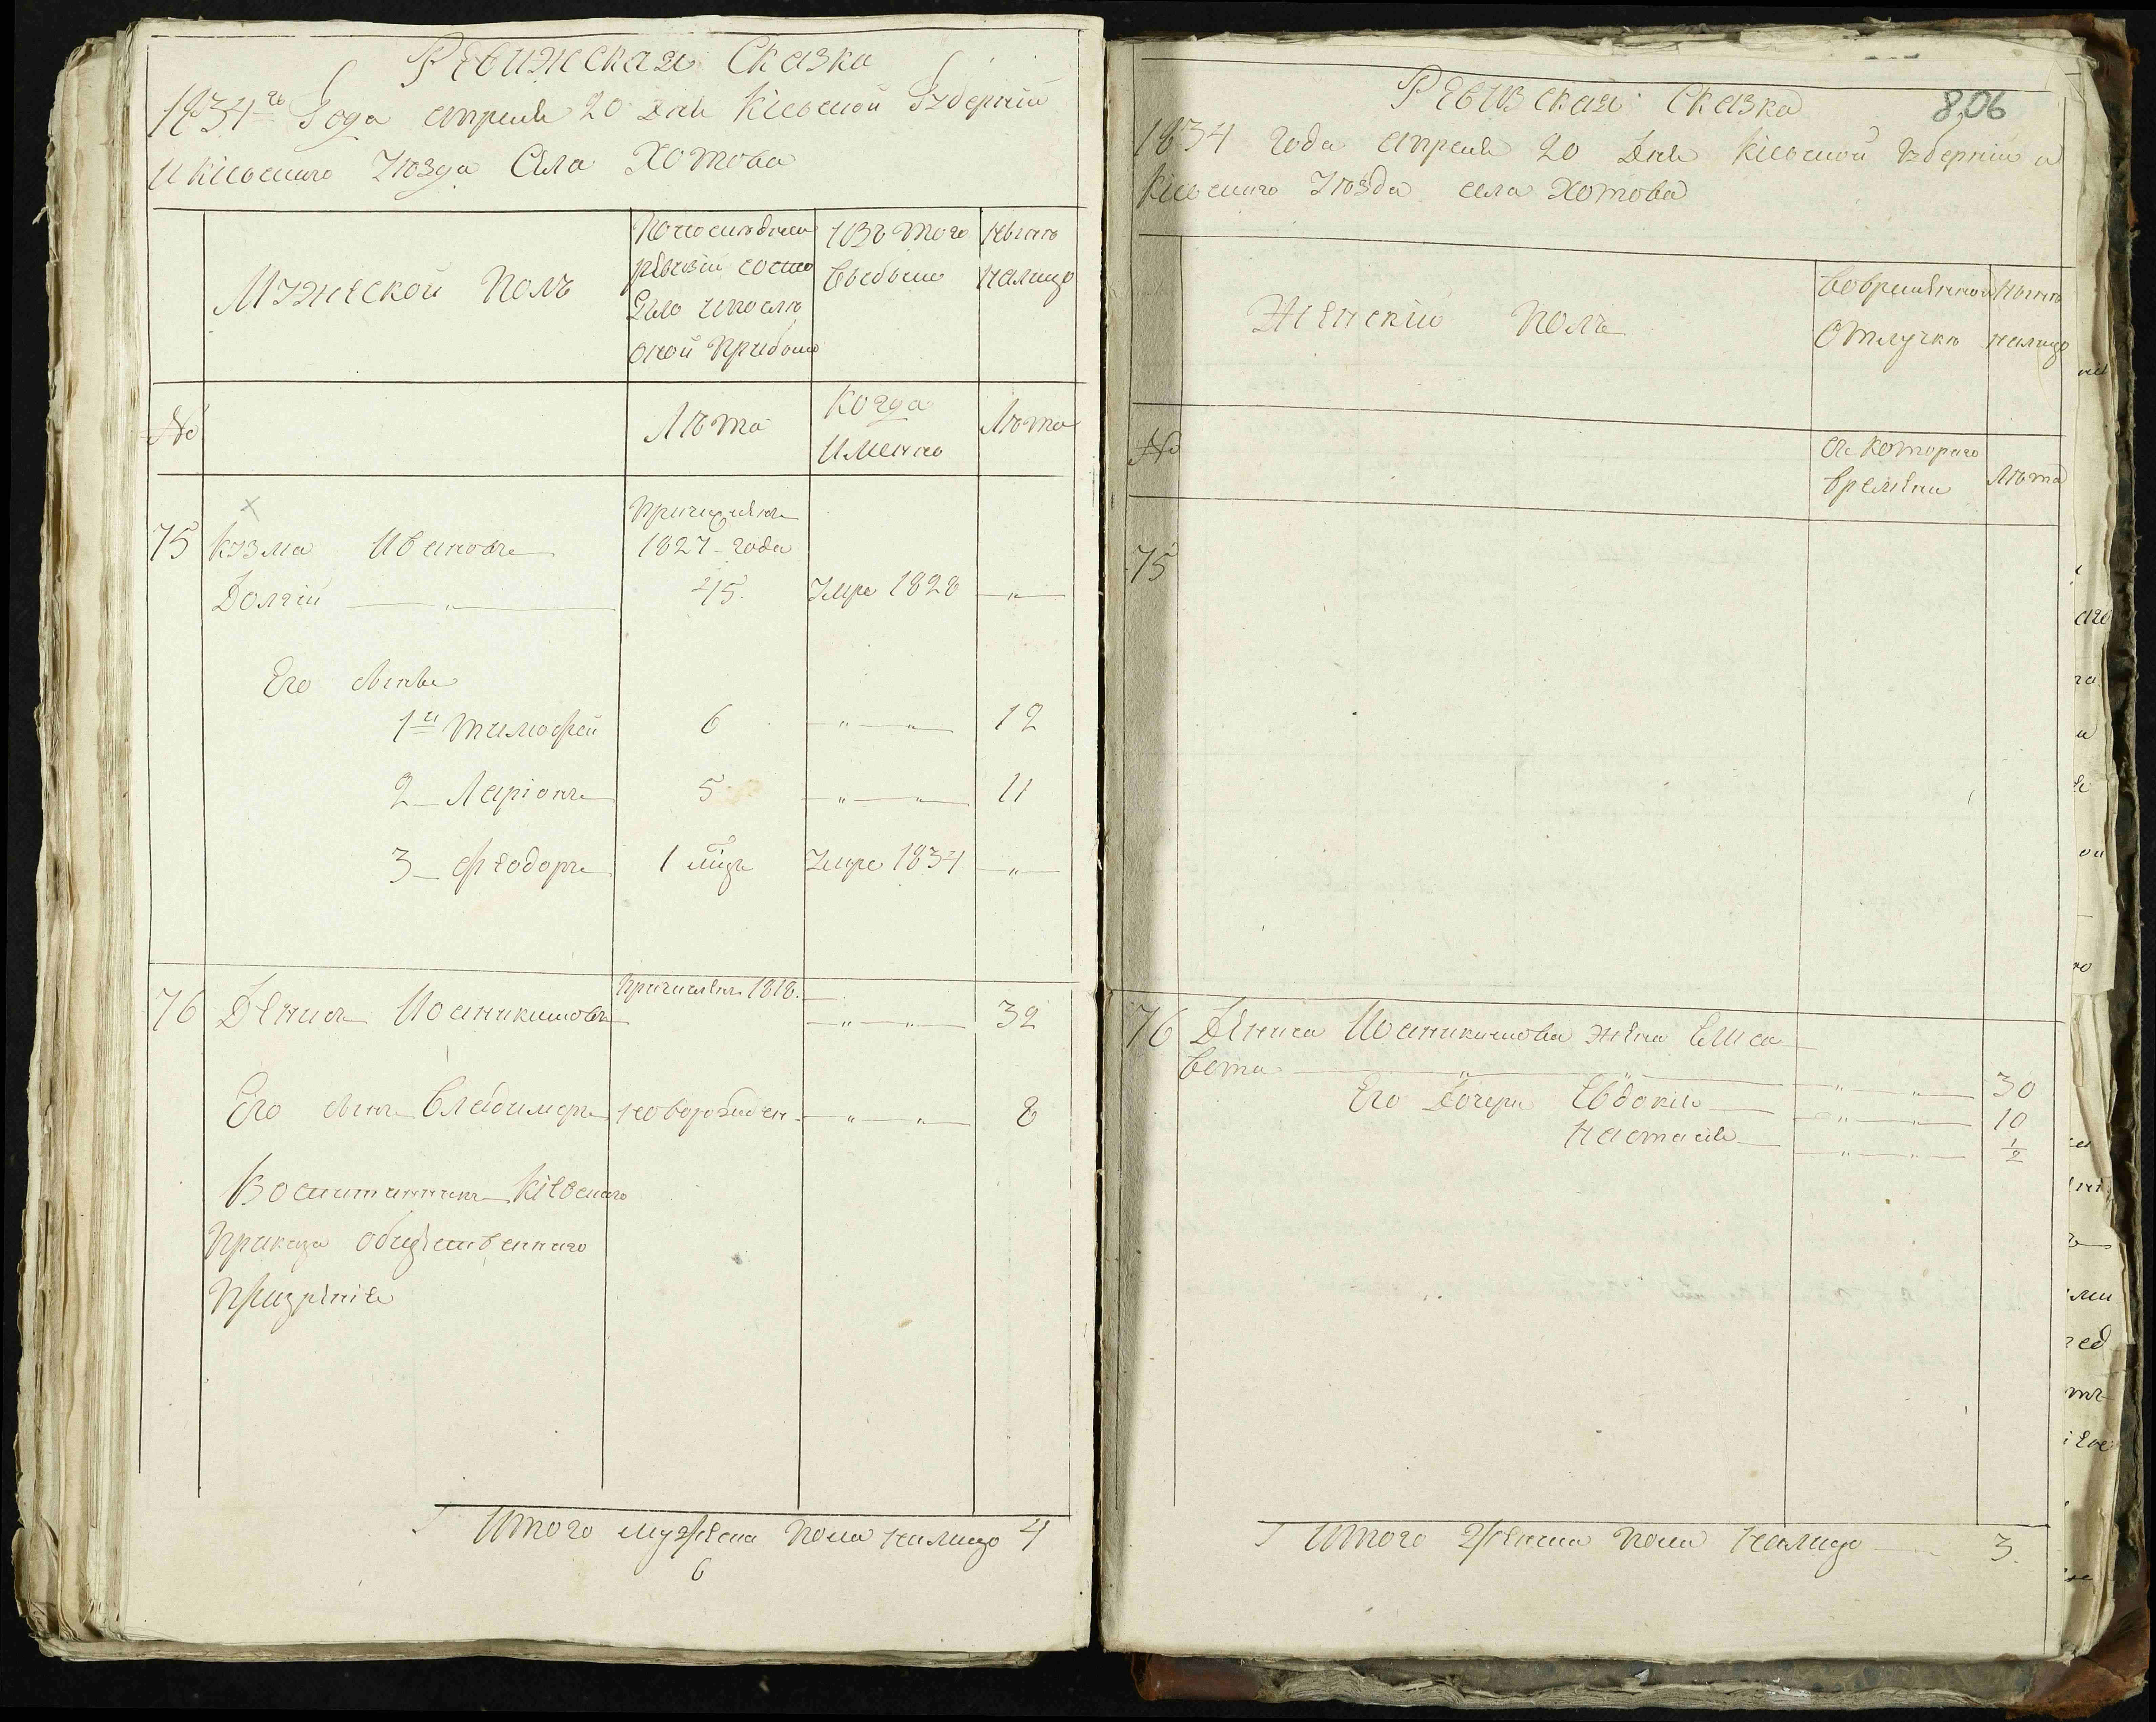 Ревижская Сказка
1834го Года апреля 20 дня Кіевской Губерніи
и Кіевского Уезда Села Хотова
Мужеской Полъ
По последней
ревизіи состо
яло и после
оной прибыло
Изъ того
выбыло
Ныне
налицо
№
Лета
Когда
Именно
Лета
Причислен
1827 года
75 Кузма Ивановъ
Долгій 45 Умре 1828
Его сыновья
1й Тимофей 6 12
2 Ларіонъ 5 11
3 Феодоръ 1 мцъ Умре 1834
76 Денисъ Иоаникиевъ Причисленъ 1818 32
Его сынъ Владимеръ новорожден 8
Воспитанникъ Кіевского
приказа общественнаго
Призренія
Итого мужеска пола налицо 4
6
806
Ревизская Сказка
1834 года апреля 20 дня Кіевской губерніи и
Кіевского Уезда села Хотова
Женскій Полъ
Во временной
Отлучке
Ныне
налицо
№
Съ которого
времени
Лета
75
76 Дениса Иоаникиева жена Елиса
вета 30
Его дочери Евдокія 10
Настасія 1/2
Итого женска пола налицо 3.